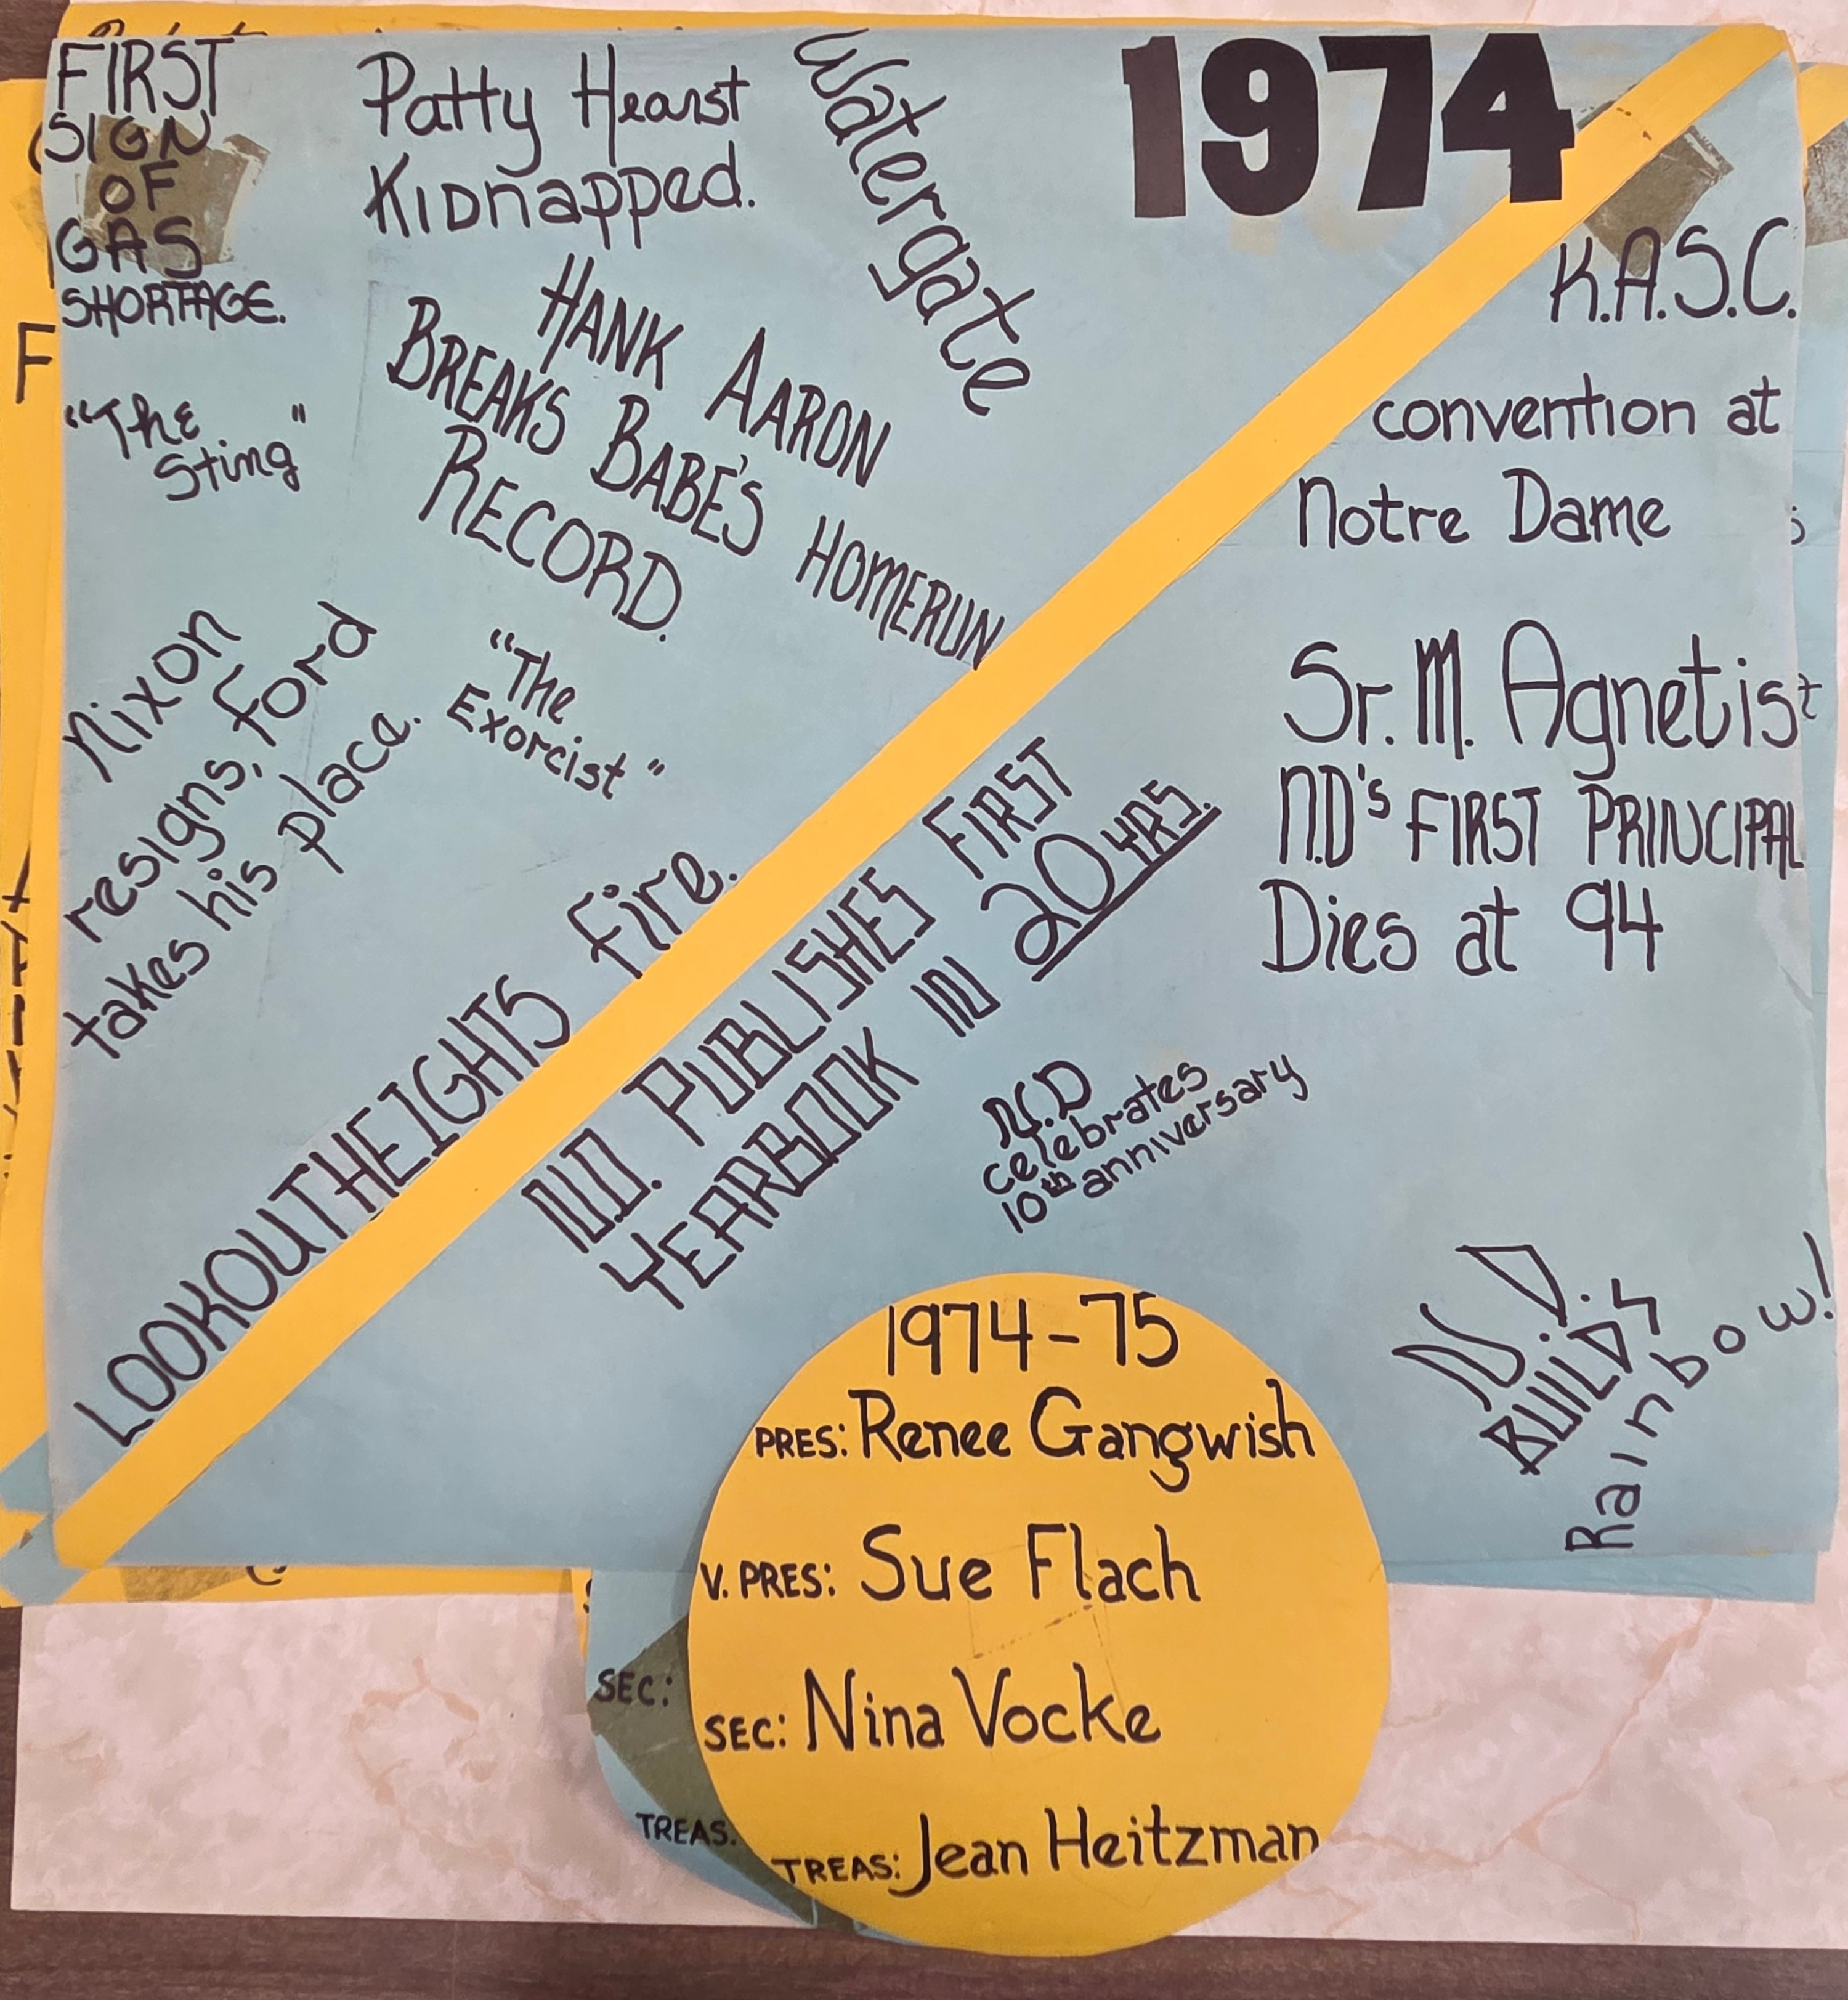 1974
FIRST
SIGN
OF
GAS
SHORTAGE.
Patty Hearst
Kidnapped.
Watergate
HANK AARON
BREAKS BABE'S HOMERUN
RECORD.
"The
Sting"
Nixon
resigns, Ford
takes his place.
"The
Exorcist"
LOOKOUT HEIGHTS fire.
K.A.S.C.
convention at
Notre Dame
Sr. M. Agnetis
N.D's FIRST PRINCIPAL
Dies at 94
N.D. PUBLISHES FIRST
YEARBOOK IN 20 YRS.
N.D
celebrates
10th anniversary
N.D.
BUILDS
Rainbow!
1974-75
PRES: Renee Gangwish
V. PRES: Sue Flach
SEC:
SEC: Nina Vocke
TREAS.
TREAS: Jean Heitzman
F